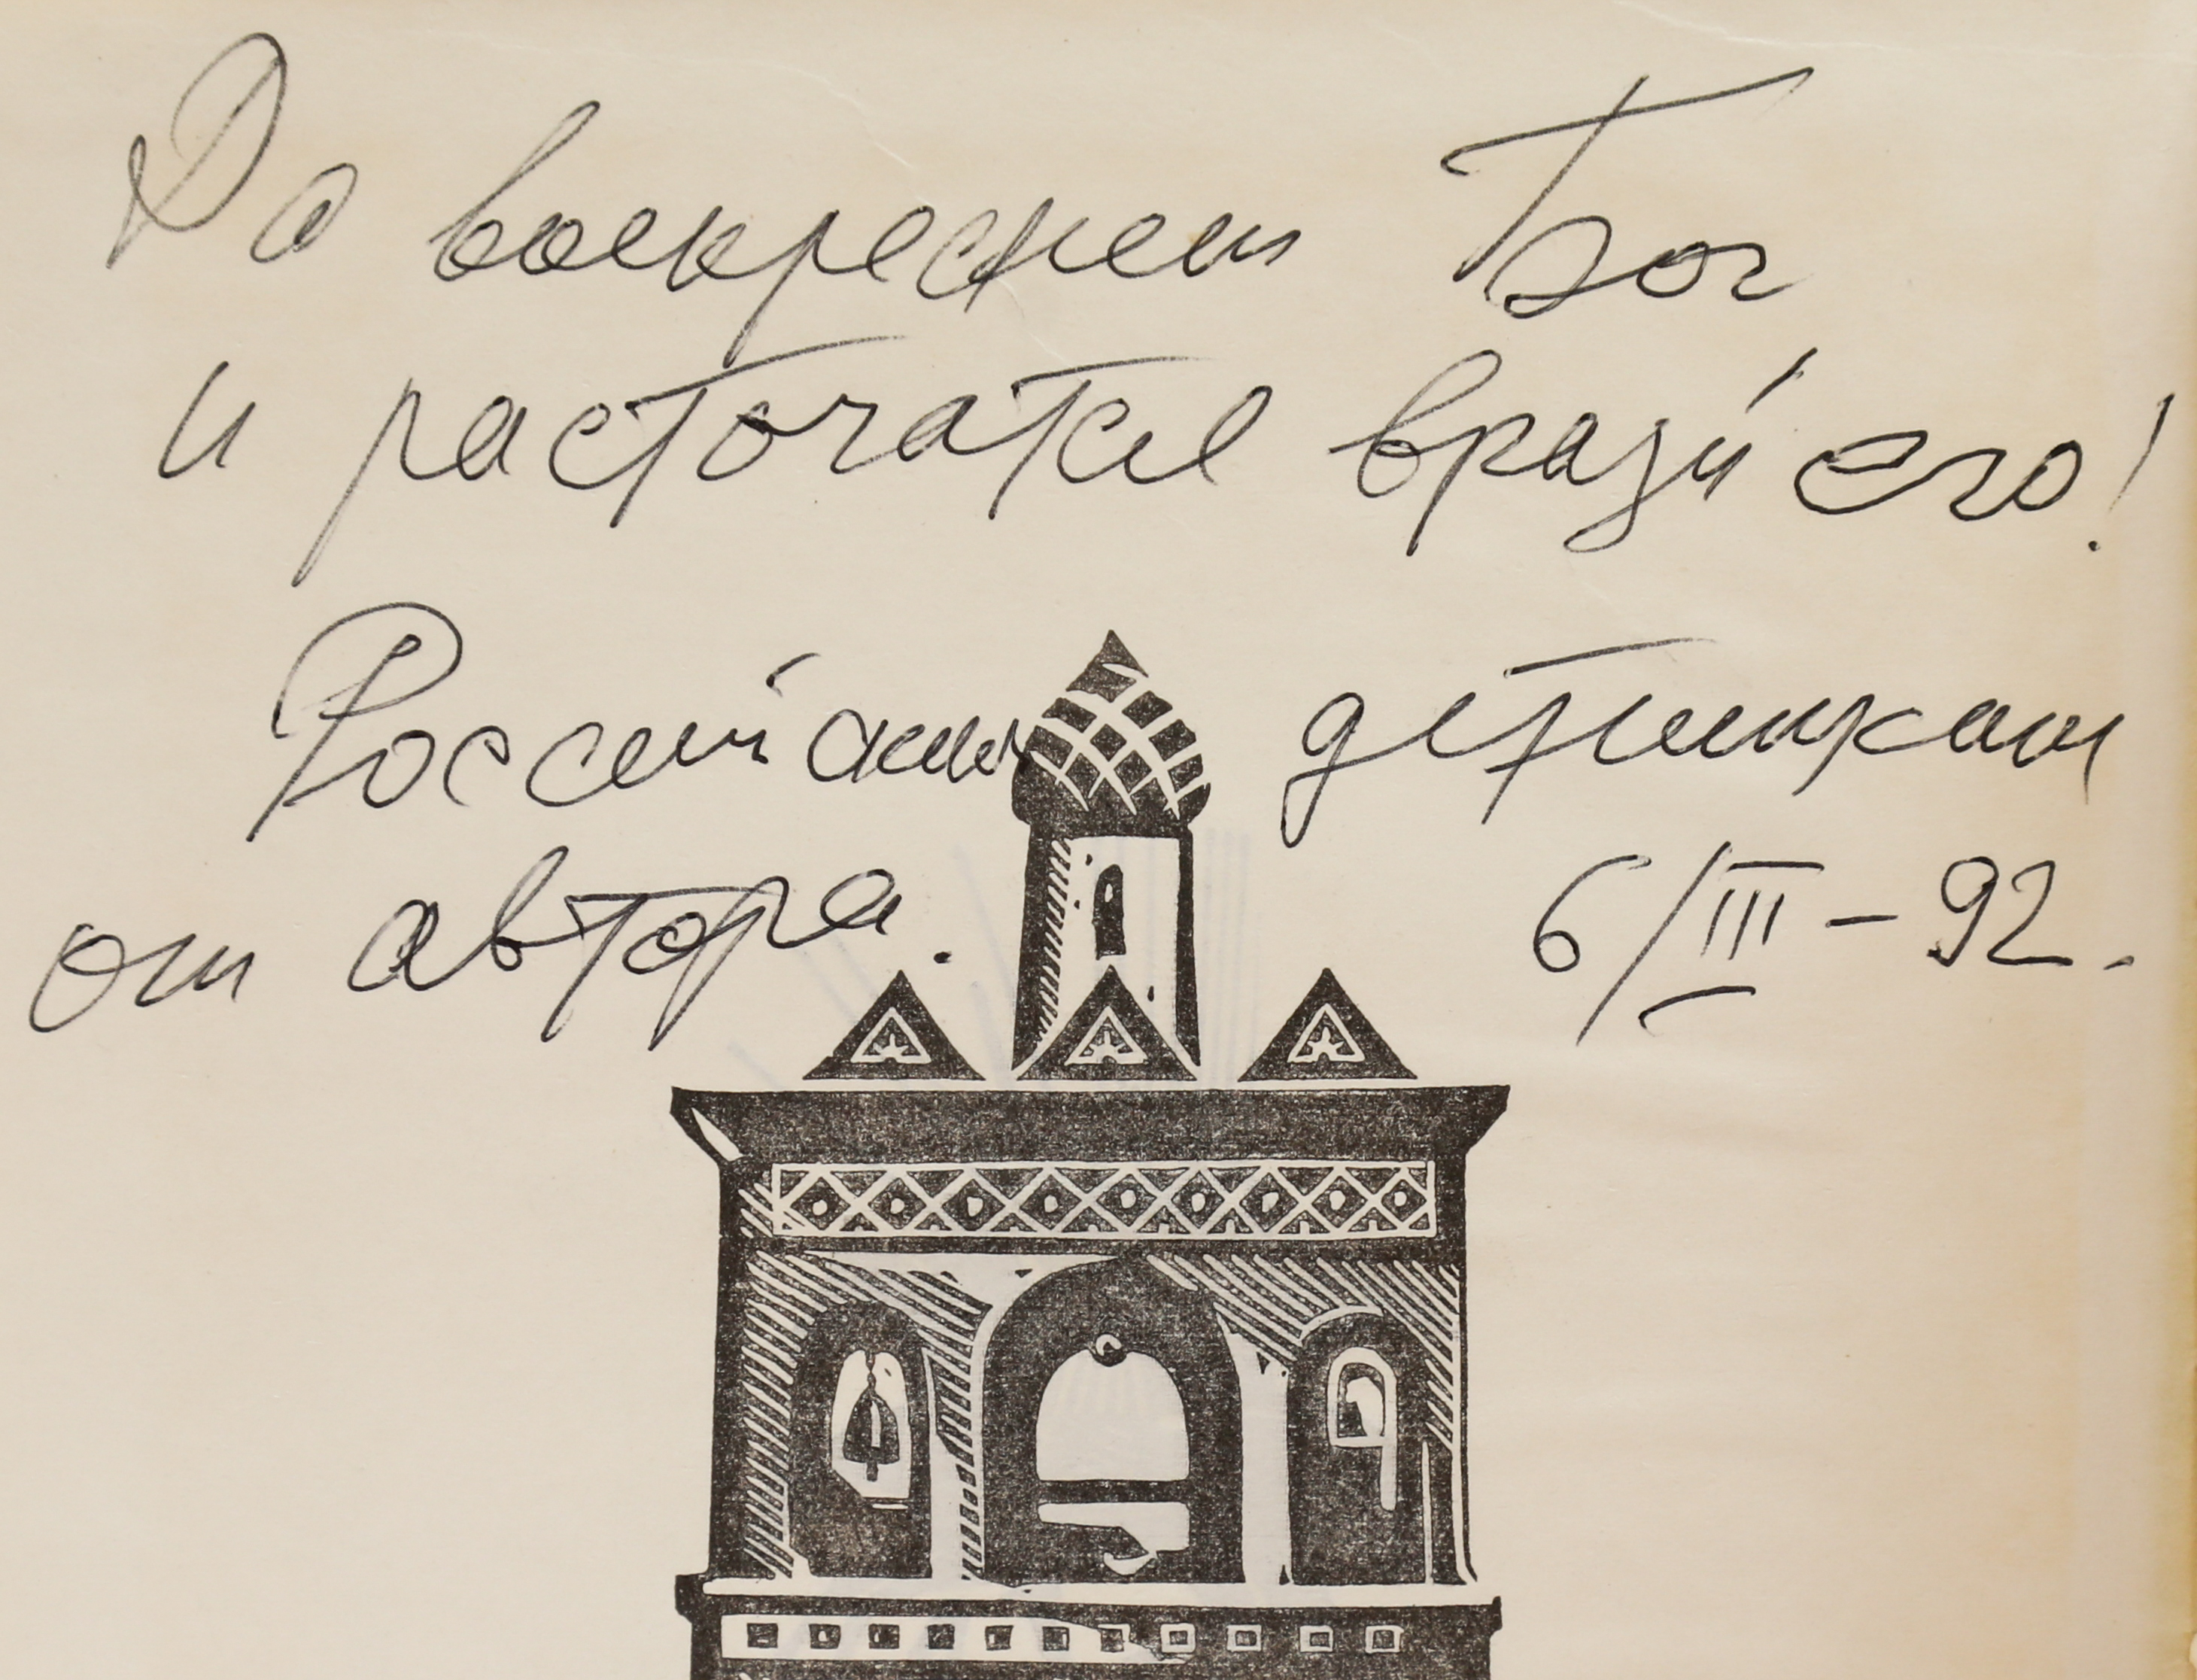 Да воскреснет Бог
и расточатся врази его!
Российским детишкам
от автора. 6/III – 92.